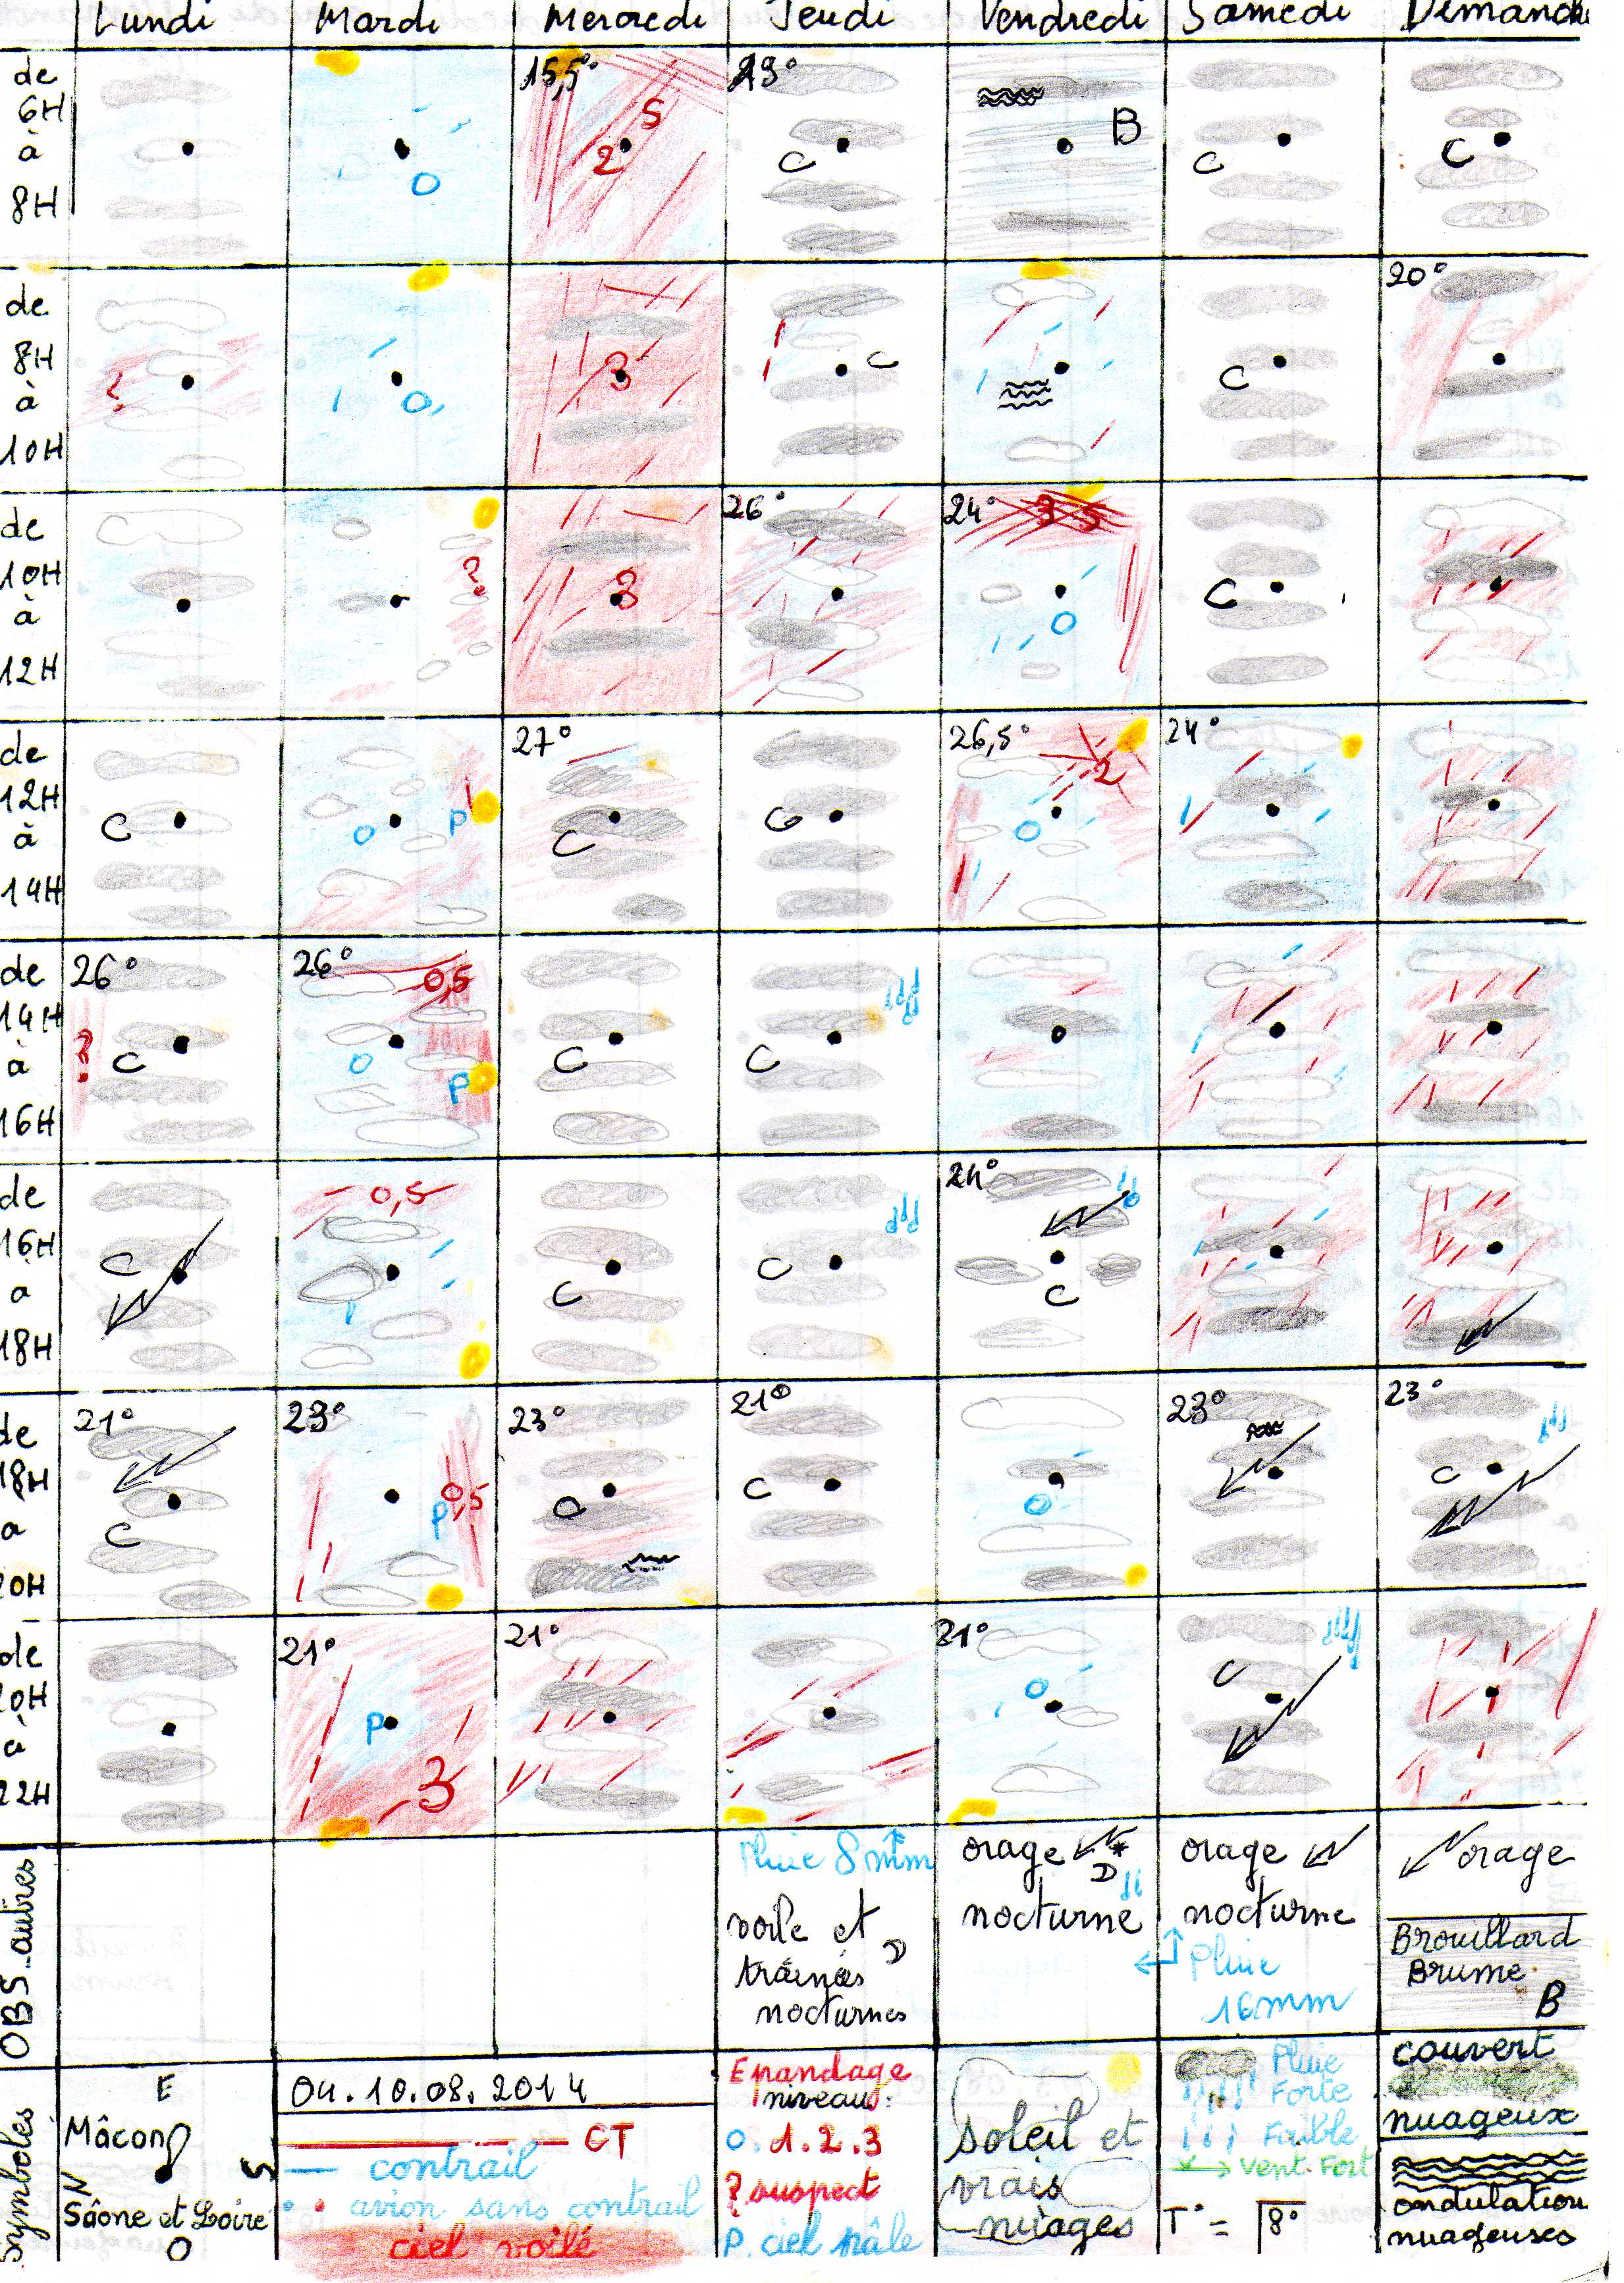 Lundi Mardi Mercredi Jeudi Vendredi Samedi Dimanche
de 6H à 8H
15,5°
S
2
C
B
C
C
O
de 8H à 10H
20°
?
O
3
C
C
de 10H à 12H
26°
24°
3 S
?
3
O
C
de 12H à 14H
27°
26,5°
24°
C
O
P
C
C
O
2
de 14H à 16H
26°
26°
0,5
?
C
O
P
C
C
de 16H à 18H
0,5
24°
C
C
C
C
de 18H à 20H
21°
23°
23°
21°
23°
23°
C
P
0,5
C
C
O
C
de 20H à 22H
21°
21°
21°
P
3
O
C
OBS. autres
Pluie 8mm
voile et
traînées
nocturnes
orage
nocturne
orage
nocturne
Pluie
16mm
orage
Brouillard
Brume
B
Symboles
E
Mâcon
N
S
Saône et Loire
O
04.10.08.2014
CT
contrail
avion sans contrail
ciel voilé
Epandage
niveaux:
0.1.2.3
? suspect
P. ciel pâle
soleil et
vrais
nuages
Pluie
Forte
Faible
Vent Fort
T° = 8°
couvert
nuageux
ondulation
nuageuses